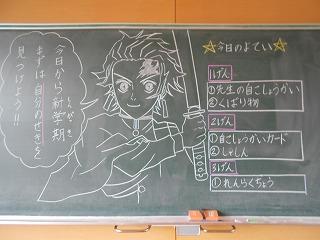 今日から新学期
しんがっき
まずは自分のせきを
見つけよう!!
☆今日のよてい☆
1げん
①先生の自こしょうかい
②くばり物
2げん
①自こしょうかいカード
②しゃしん
3げん
①れんらくちょう